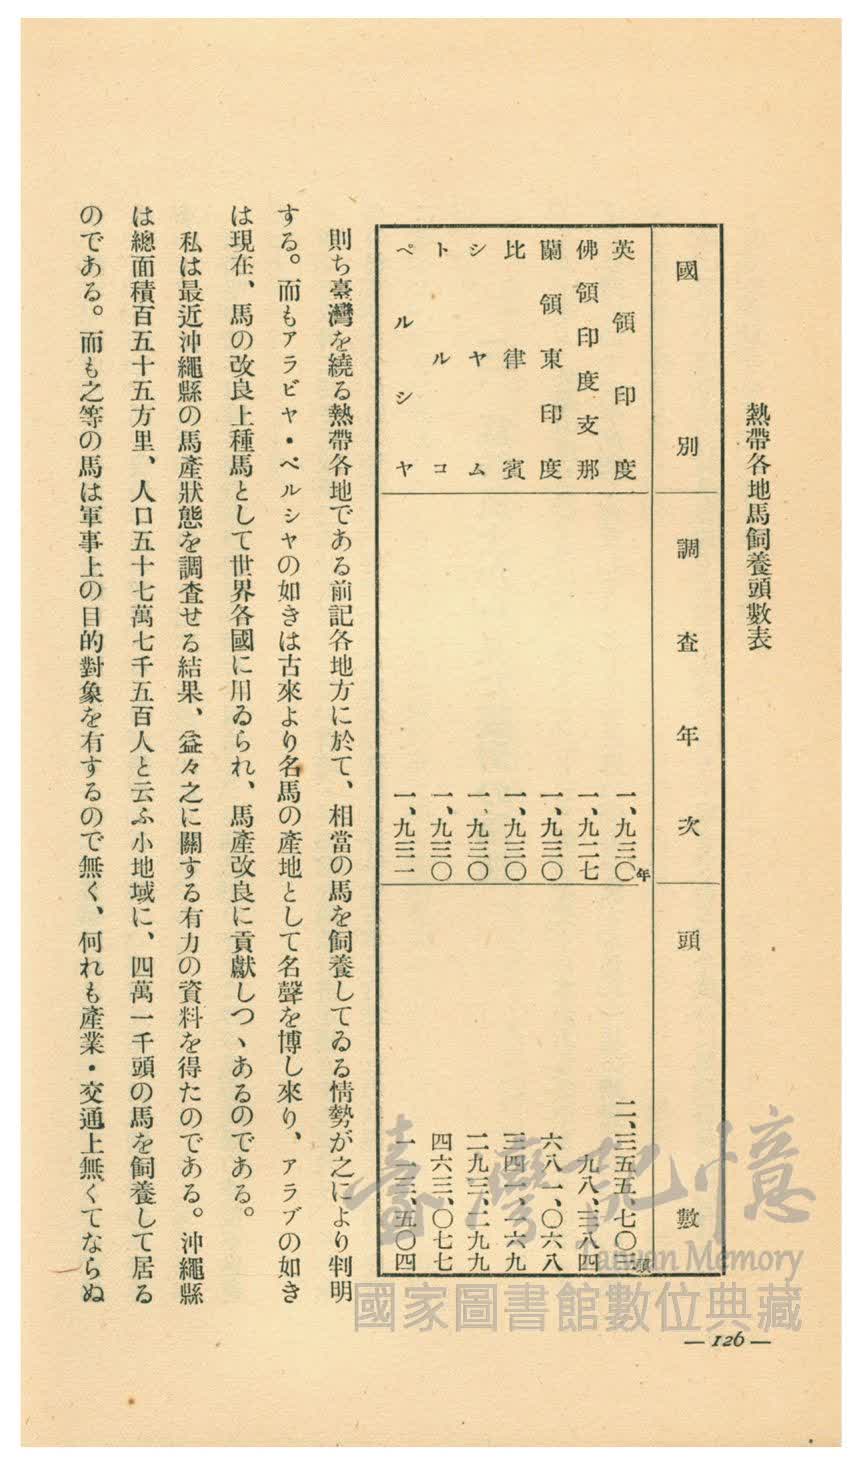 熱帶各地馬飼養頭數表
國別 調査年次 頭數
英領印度 一、九三〇年 二、三五五、七〇三頭
佛領印度支那 一、九二七 九八、三八四
蘭領東印度 一、九三〇 六八一、〇六八
比律賓 一、九三〇 三四一、一六九
シヤム 一、九三〇 二九三、二九九
トルコ 一、九三〇 四六三、〇七七
ペルシヤ 一、九三一 一一三、五〇四
則ち臺灣を繞る熱帶各地である前記各地方に於て、相當の馬を飼養してゐる情勢が之により判明
する。而もアラビヤ・ペルシヤの如きは古來より名馬の產地として名聲を博し來り、アラブの如き
は現在、馬の改良上種馬として世界各國に用ゐられ、馬產改良に貢獻しつヽあるのである。
私は最近沖繩縣の馬產狀態を調査せる結果、益々之に關する有力の資料を得たのである。沖繩縣
は總面積百五十五方里、人口五十七萬七千五百人と云ふ小地域に、四萬一千頭の馬を飼養して居る
のである。而も之等の馬は軍事上の目的對象を有するので無く、何れも產業・交通上無くてならぬ
— 126 —
臺灣記憶
Taiwan Memory
國家圖書館數位典藏